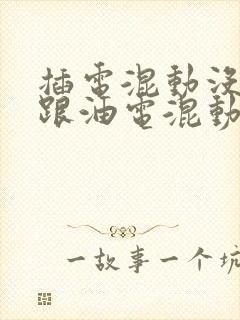 插電混動没
跟油電混動
一故事一个坑